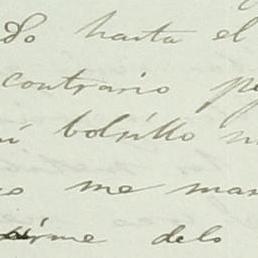 do hasta el
contrario pe
mi bolsillo n
me man
irme delo